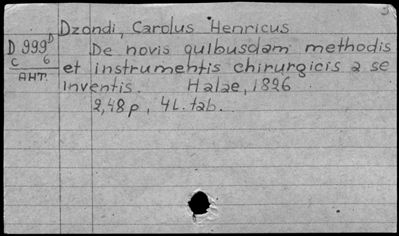 3
Dzondi, Carolus Henricus
D 999 D
c 6
AHT.
De novis quibusdam methodis
et instrumentis chirurgicis a se
inventis. Halae, 1826
2,48 p, 4 L. tab.